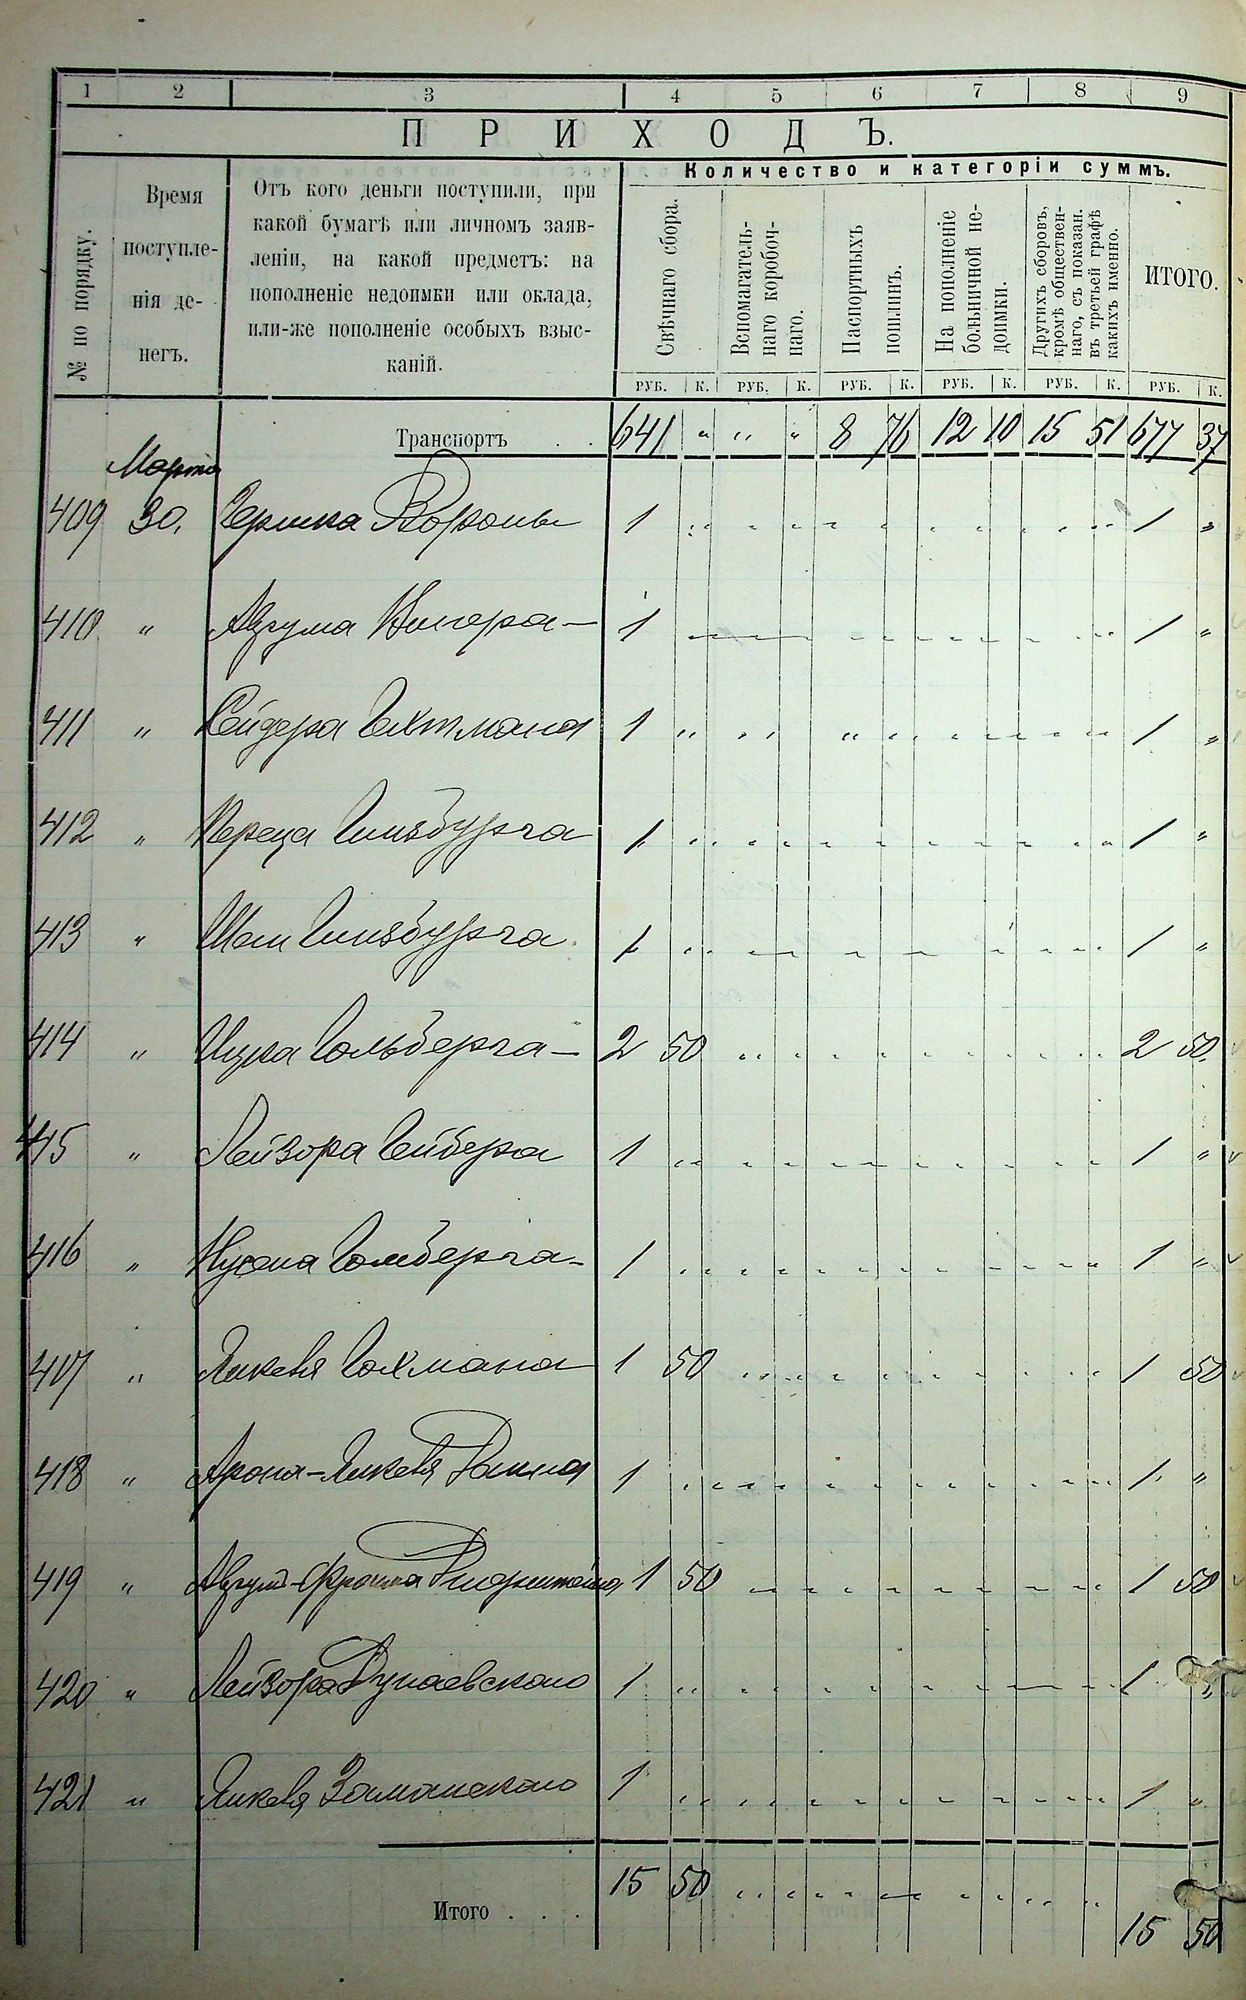 1 2 3 4 5 6 7 8 9
ПРИХОДЪ.
№ по порядку.
Время
поступле-
нія де-
негъ.
Отъ кого деньги поступили, при
какой бумагѣ или личномъ заяв-
леніи, на какой предметъ: на
пополненіе недоимки или оклада,
или-же пополненіе особыхъ взыс-
каній.
Количество и категоріи суммъ.
Свѣчнаго сбора.
Вспомагатель-
наго коробоч-
наго.
Паспортныхъ
пошлинъ.
На пополненіе
больничной не-
доимки.
Другихъ сборовъ,
кромѣ обществен-
наго, съ показан.
въ третьей графѣ
какихъ именно.
ИТОГО.
РУБ. К. РУБ. К. РУБ. К. РУБ. К. РУБ. К. РУБ. К.
Транспортъ . . 641 " " " 8 76 12 10 15 51 677 37
Марта
409 30. Гершка Вороны 1 " 1 "
410 " Аврума 1 1 "
411 " Сейдера Гехтмана 1 " 1 "
412 " Переца Гинзбурга 1 " 1 "
413 " Шаи Гинзбурга 1 " 1 "
414 " Ицка Гольберга 2 50 2 50
415 " Лейзора Гейбера 1 " 1 "
416 " Нусена Гомберга 1 " 1 "
417 " Янкеля Гохмана 1 50 1 50
418 " Арона-Янкеля 1 " 1 "
419 " Аврум- 1 50 1 50
420 " Лейзора Дунаевскаго 1 " 1 "
421 " Янкеля Заманскаго 1 " 1 "
Итого . . . 15 50 15 50